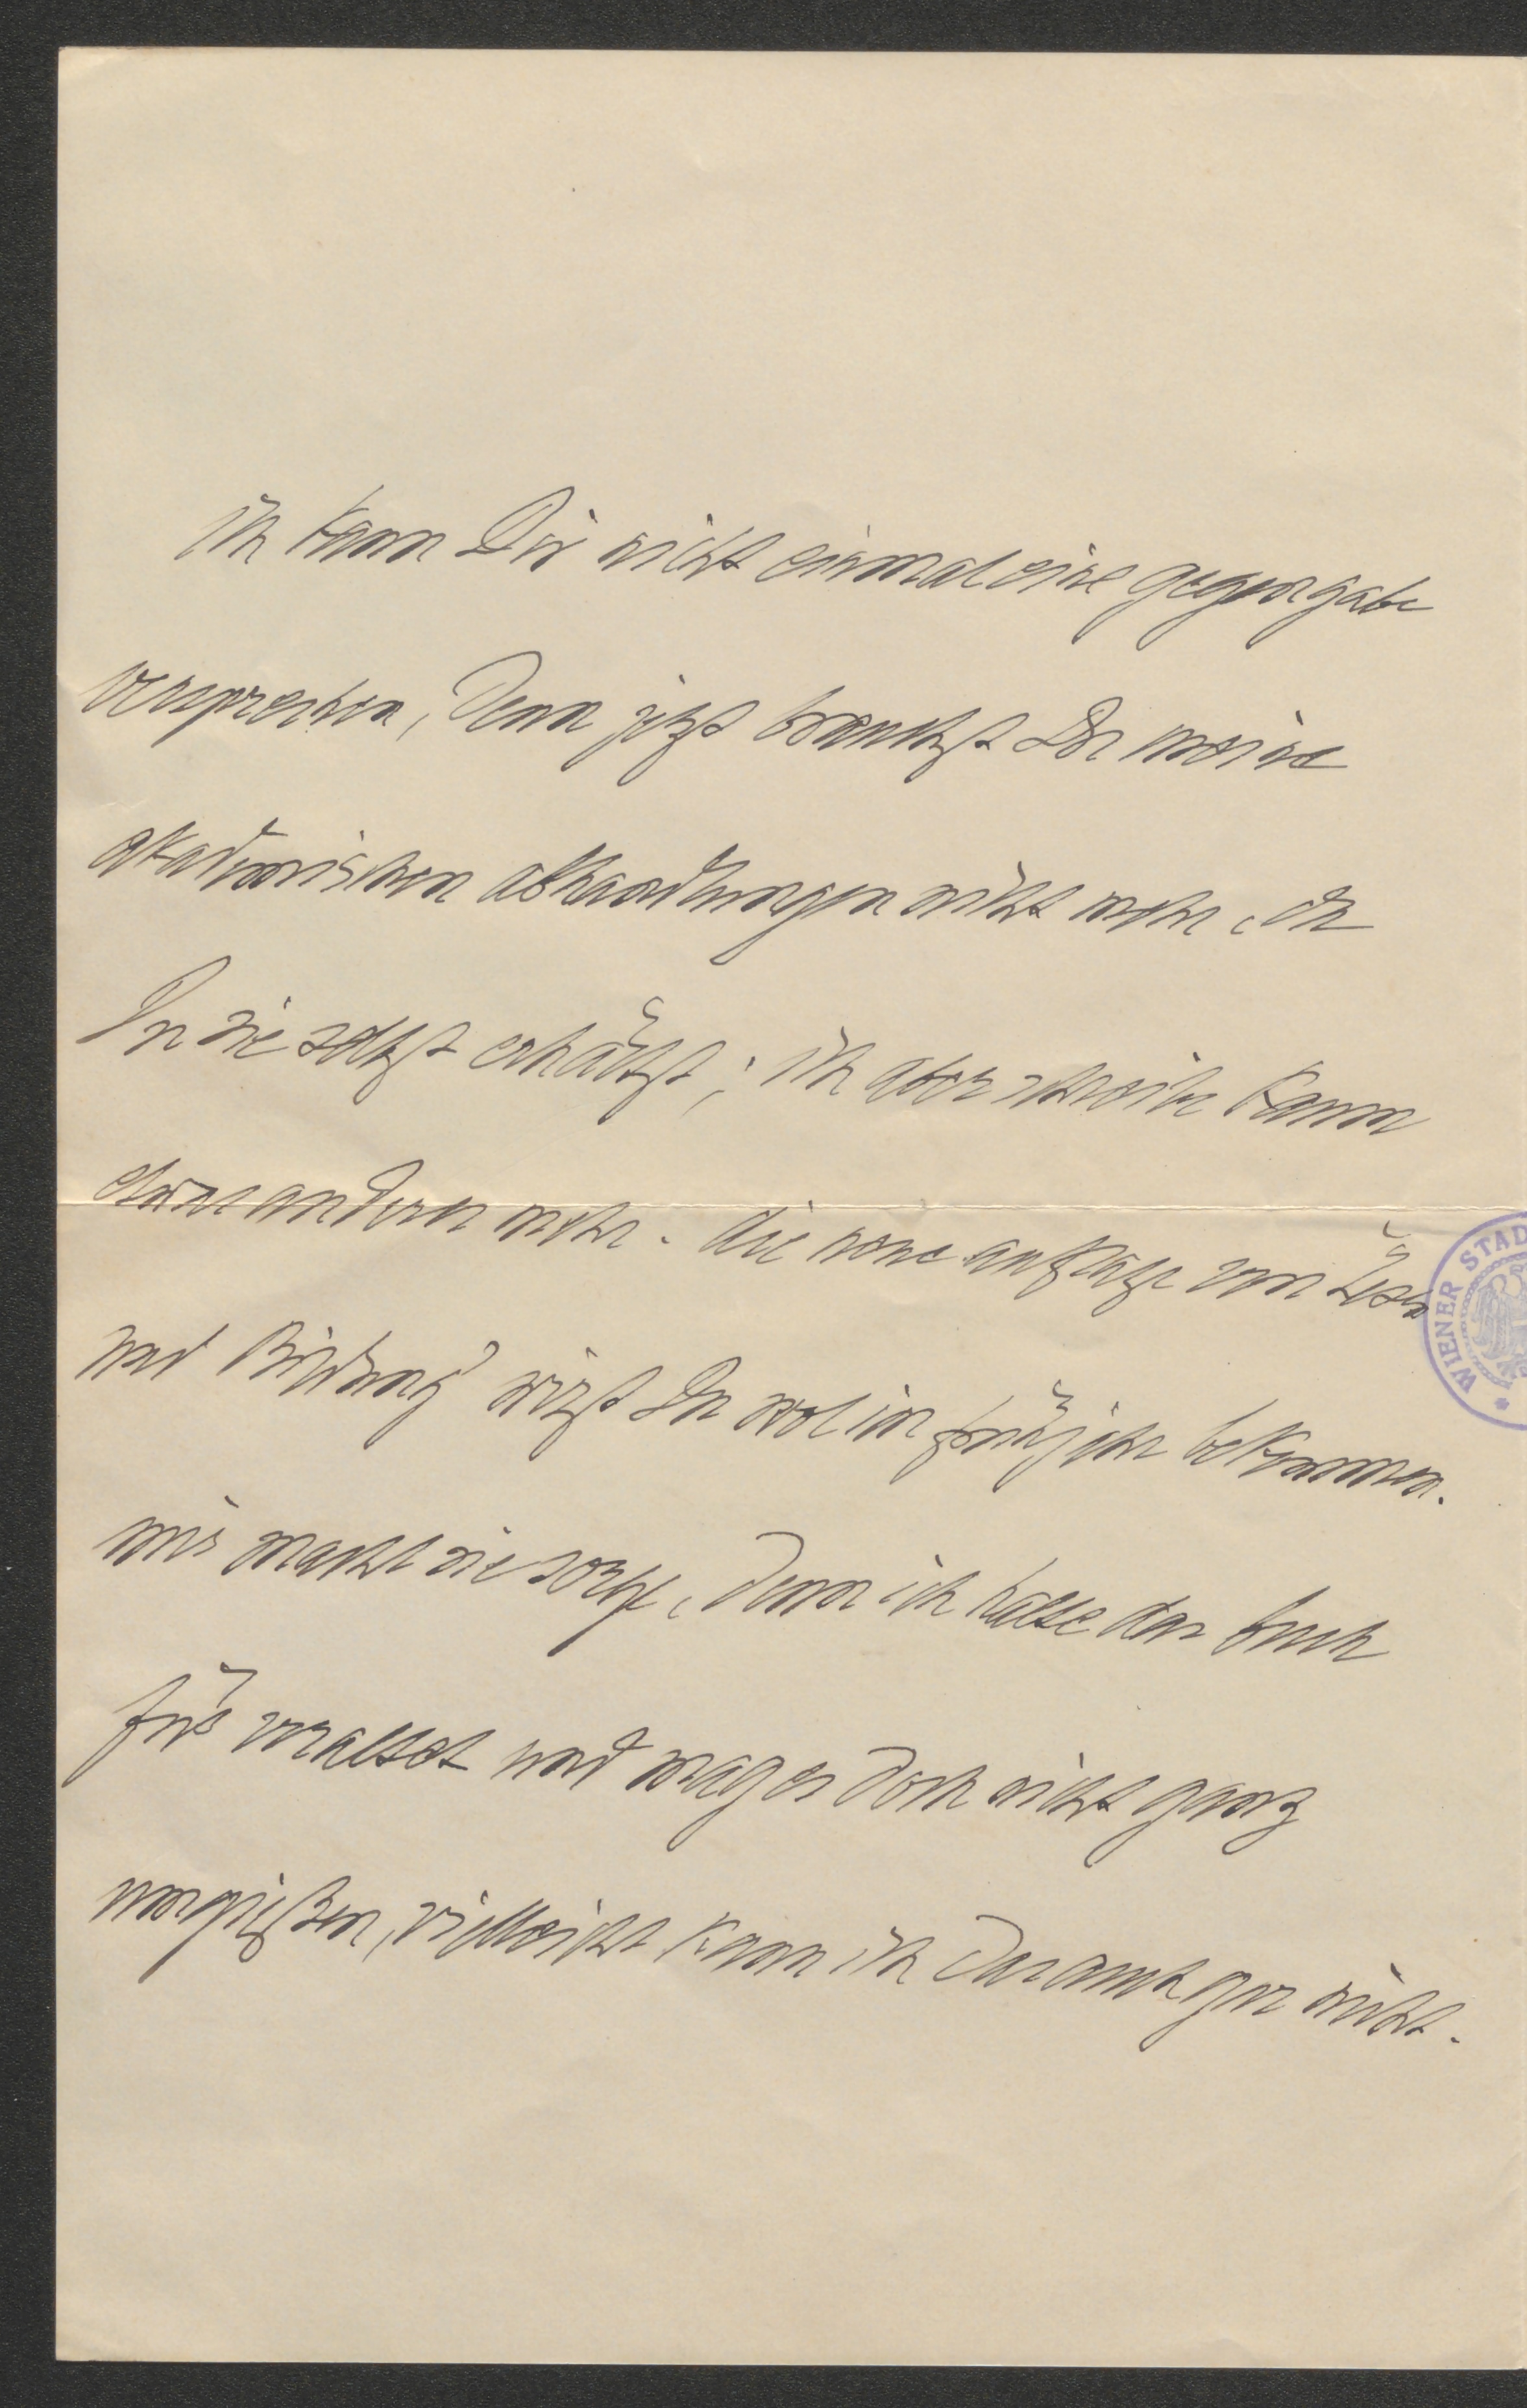 ich kann Dir nicht einmal eine gegengabe
versprechen, denn jetzt brauchst Du meine
akademischen abhandlungen nicht mehr, da
Du sie selbst erhältst; ich aber schreibe kaum
etwas andern mehr. die neue auflage von Leben
und Bildung' wirst Du wol im frühjahr bekommen.
mir macht sie sorge, denn ich halte das buch
für veraltet und mag es doch nicht ganz
umgießen, vielleicht kann ich das auch gar nicht.
WIENER STAD